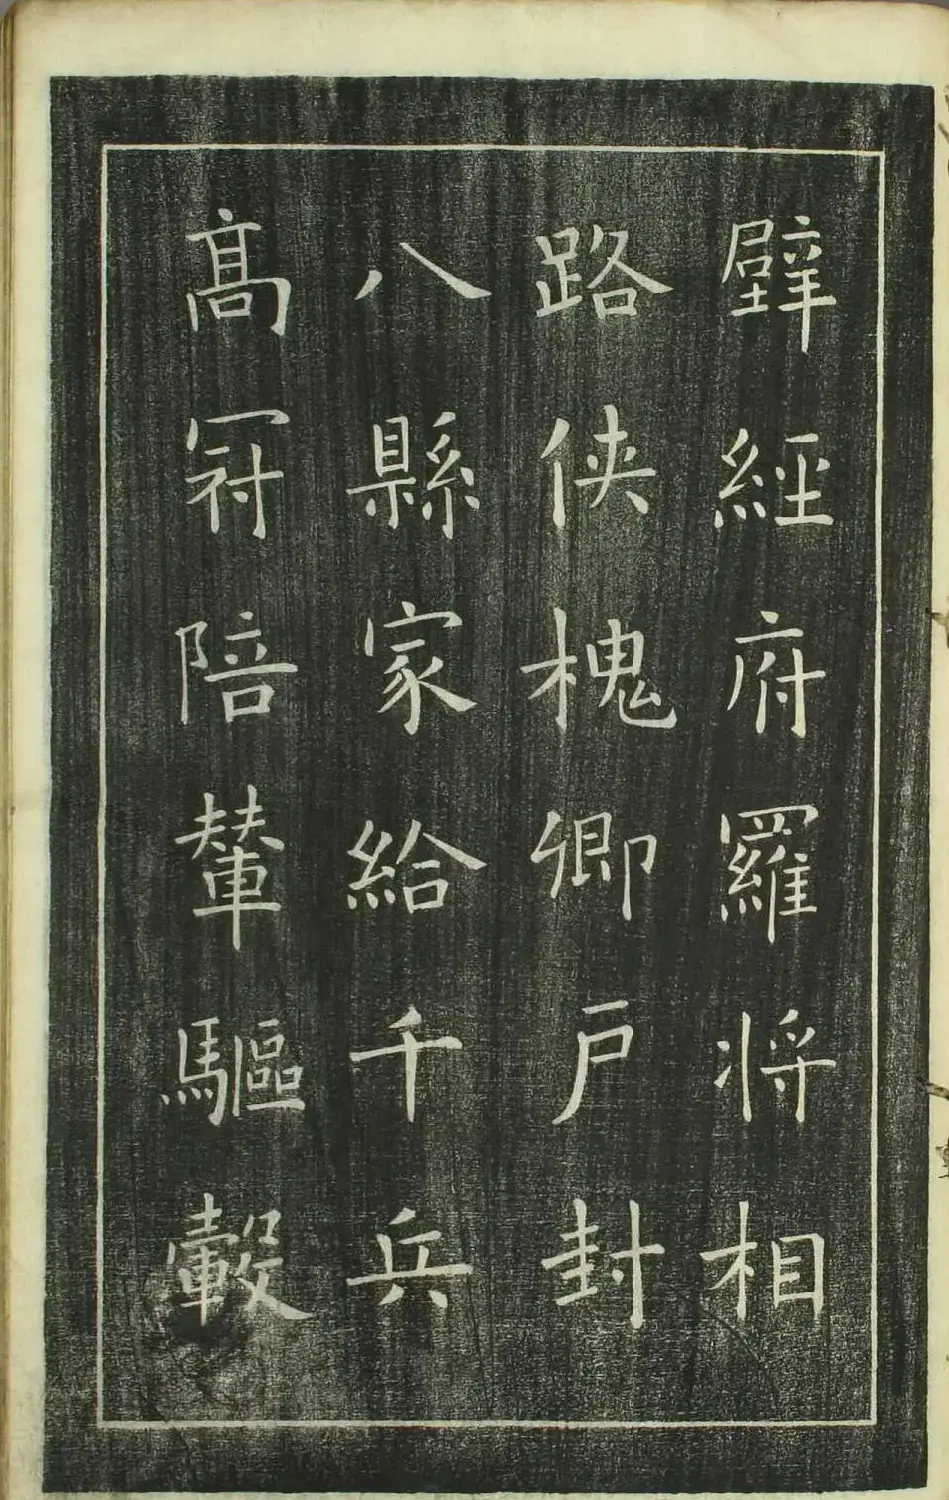 壁經府羅將相
路俠槐卿戶封
八縣家給千兵
高冠陪輦驅轂